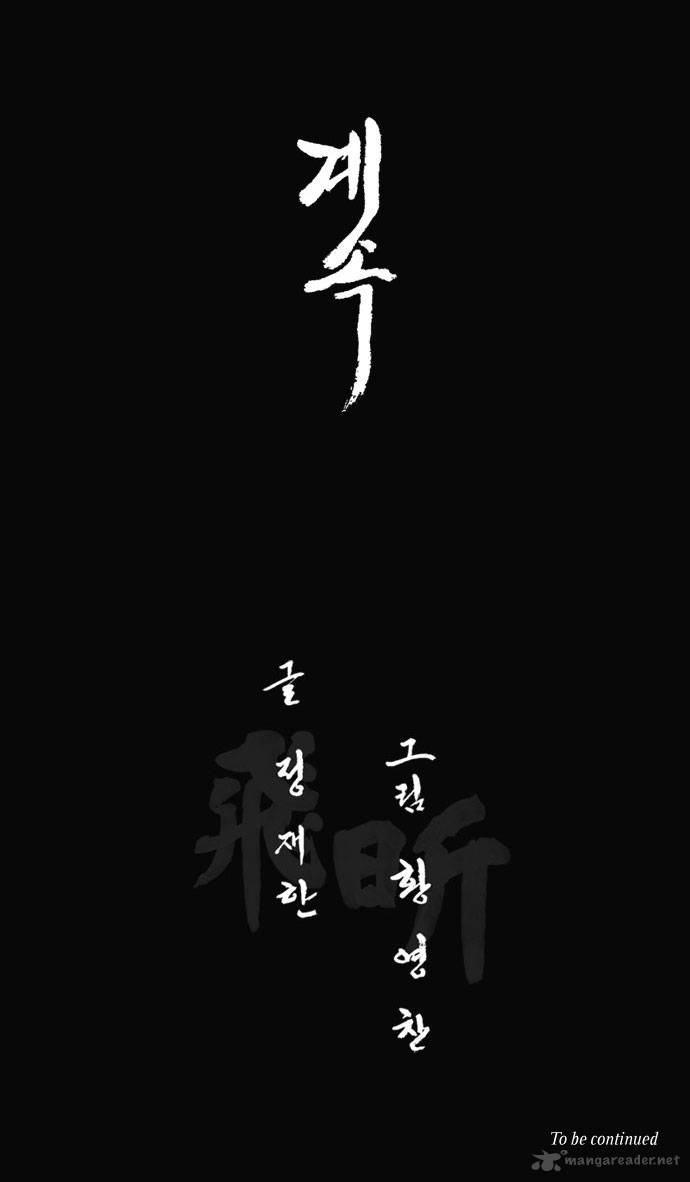 계속
글 정재한
그림 황영찬
飛昕
To be continued
mangareader.net